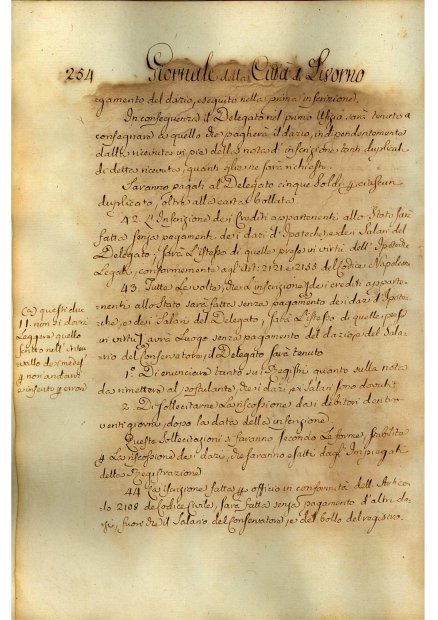 254 Giornale della Città di Livorno
egamento del dazio, eseguito nella prima inscrizione.
In conseguenza il Delegato nel primo Ufizio sarà tenuto a
consegnare a quello che pagherà il dazio, indipendentemente
dalla ricevuta in piè della nota d'inscrizione tanti duplicati
di detta ricevuta, quanti glie ne sarà richiesti.
Saranno pagati al Delegato cinque Soldi p ciascun
duplicato, oltre alla carta bollata
42. L'Inscrizione dei Crediti appartenenti allo Stato sarà
fatta senza pagamento dei dazi d'Ipoteche, e dei Salari del
Delegato; sarà l'istesso di quelle prese in virtù dell'Ipoteche
Legali, conformemente agli Art. 2121 e 2135 del Codice Napoleone
43. Tutte le volte, che l'inscrizione dei crediti apparte
nenti allo Stato sarà fatta senza pagamento dei dazi d'Ipote
che, e dei Salari del Delegato, sarà l'istesso di quelle prese
in virtù avrà luogo senza pagamento del dazio, e del Sala
rio del Conservatore, il Delegato sarà tenuto
1.° Di enunciare tanto sui Registri quanto sulla nota
da rimettersi al postulante, che i dazi, e i salari sono dovuti
2. Di sollecitarne la riscossione dai debitori dentro
venti giorni, dopo la data della inscrizione
Queste sollecitazioni si faranno secondo le forme, stabilite
p la riscossione dei dazi, che saranno esatti dagli Impiegati
della Registrazione
44 La iscrizione fatta p officio in conformità dell'Artico
lo 2108 del Codice Civile, sarà fatta senza pagamento d'altri da
zi, fuori che il Salario del Conservatore, e del bollo del registro.
(a) questi due
11. non si devono
leggere quello
scritto nell'inter
vallo dei medesi
p non andare
inserito p errore